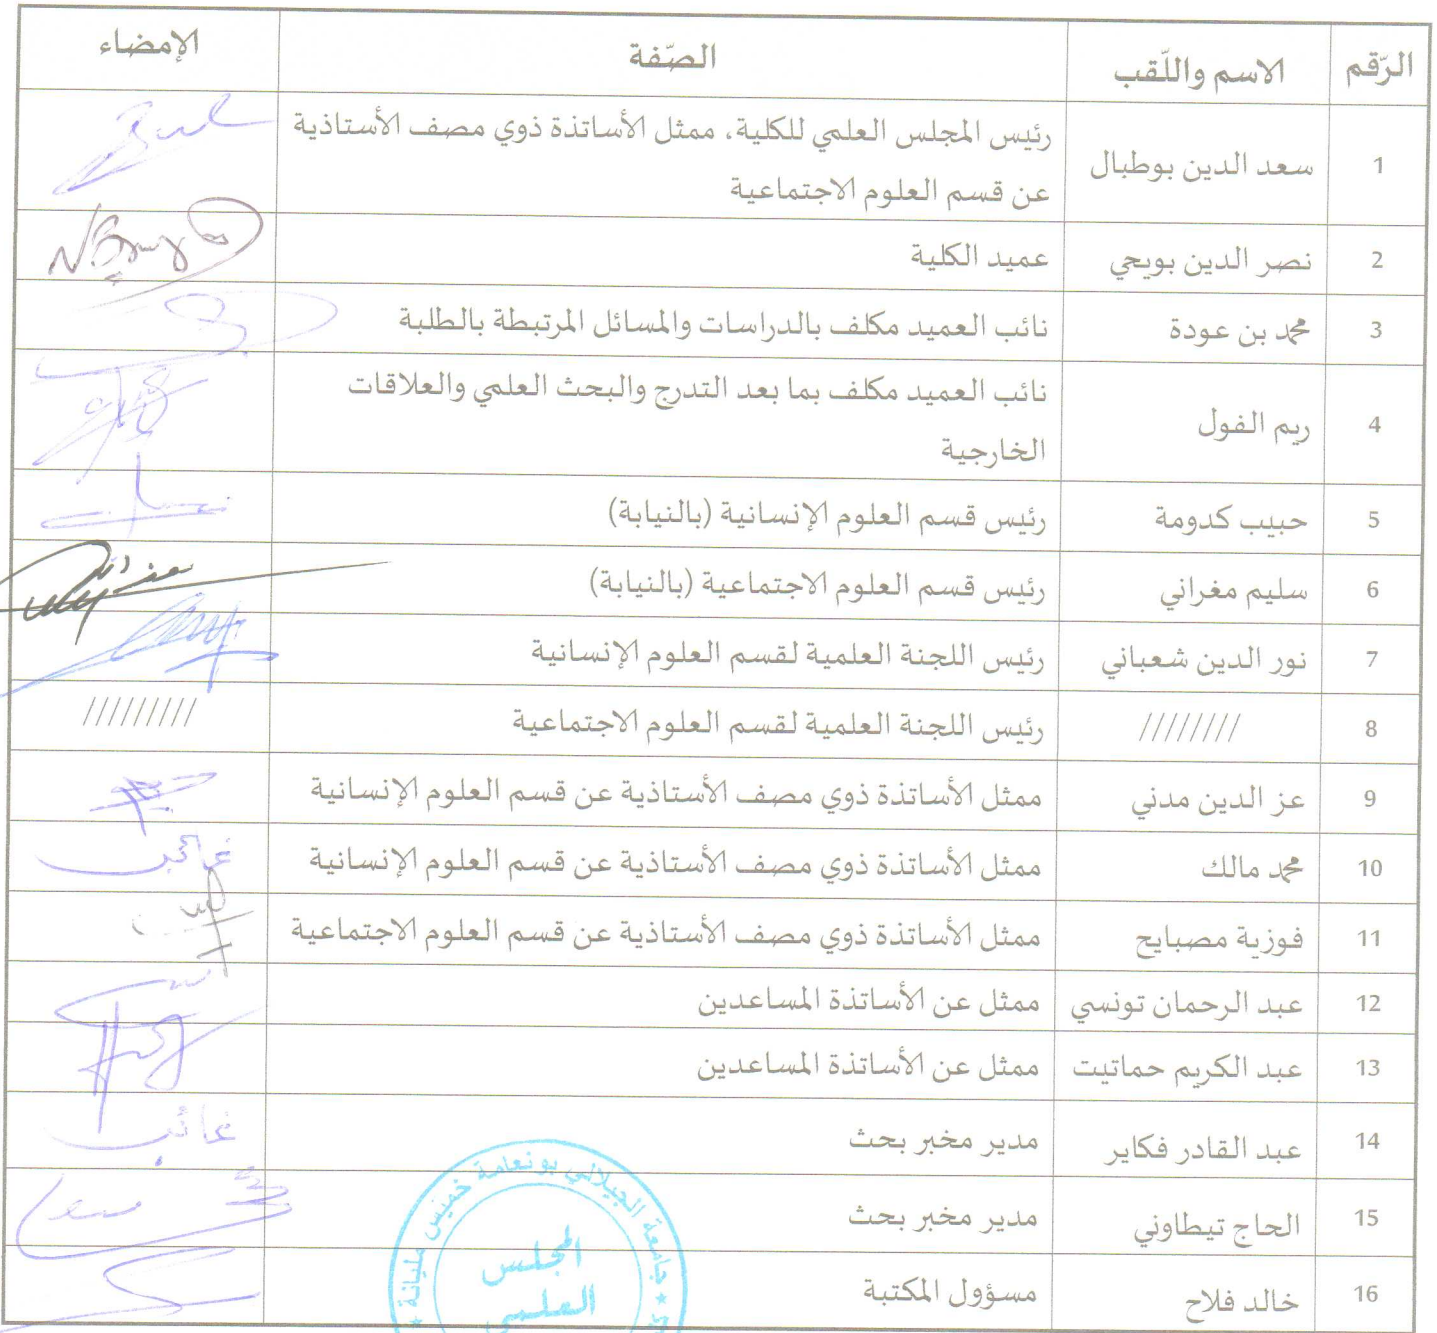 الرّقم الاسم واللّقب الصّفة الإمضاء
1 سعد الدين بوطبال رئيس المجلس العلمي للكلية، ممثل الأساتذة ذوي مصف الأستاذية
عن قسم العلوم الاجتماعية
2 نصر الدين بويحي عميد الكلية
3 محمد بن عودة نائب العميد مكلف بالدراسات والمسائل المرتبطة بالطلبة
4 ريم الفول نائب العميد مكلف بما بعد التدرج والبحث العلمي والعلاقات
الخارجية
5 حبيب كدومة رئيس قسم العلوم الإنسانية (بالنيابة)
6 سليم مغراني رئيس قسم العلوم الاجتماعية (بالنيابة)
7 نور الدين شعباني رئيس اللجنة العلمية لقسم العلوم الإنسانية
8 //////// رئيس اللجنة العلمية لقسم العلوم الاجتماعية /////////
9 عز الدين مدني ممثل الأساتذة ذوي مصف الأستاذية عن قسم العلوم الإنسانية
10 محمد مالك ممثل الأساتذة ذوي مصف الأستاذية عن قسم العلوم الإنسانية غائب
11 فوزية مصبايح ممثل الأساتذة ذوي مصف الأستاذية عن قسم العلوم الاجتماعية
12 عبد الرحمان تونسي ممثل عن الأساتذة المساعدين
13 عبد الكريم حماتيت ممثل عن الأساتذة المساعدين
14 عبد القادر فكاير مدير مخبر بحث غائب
15 الحاج تيطاوني مدير مخبر بحث
16 خالد فلاح مسؤول المكتبة
جامعة الجيلالي بونعامة خميس مليانة
المجلس
العلمي